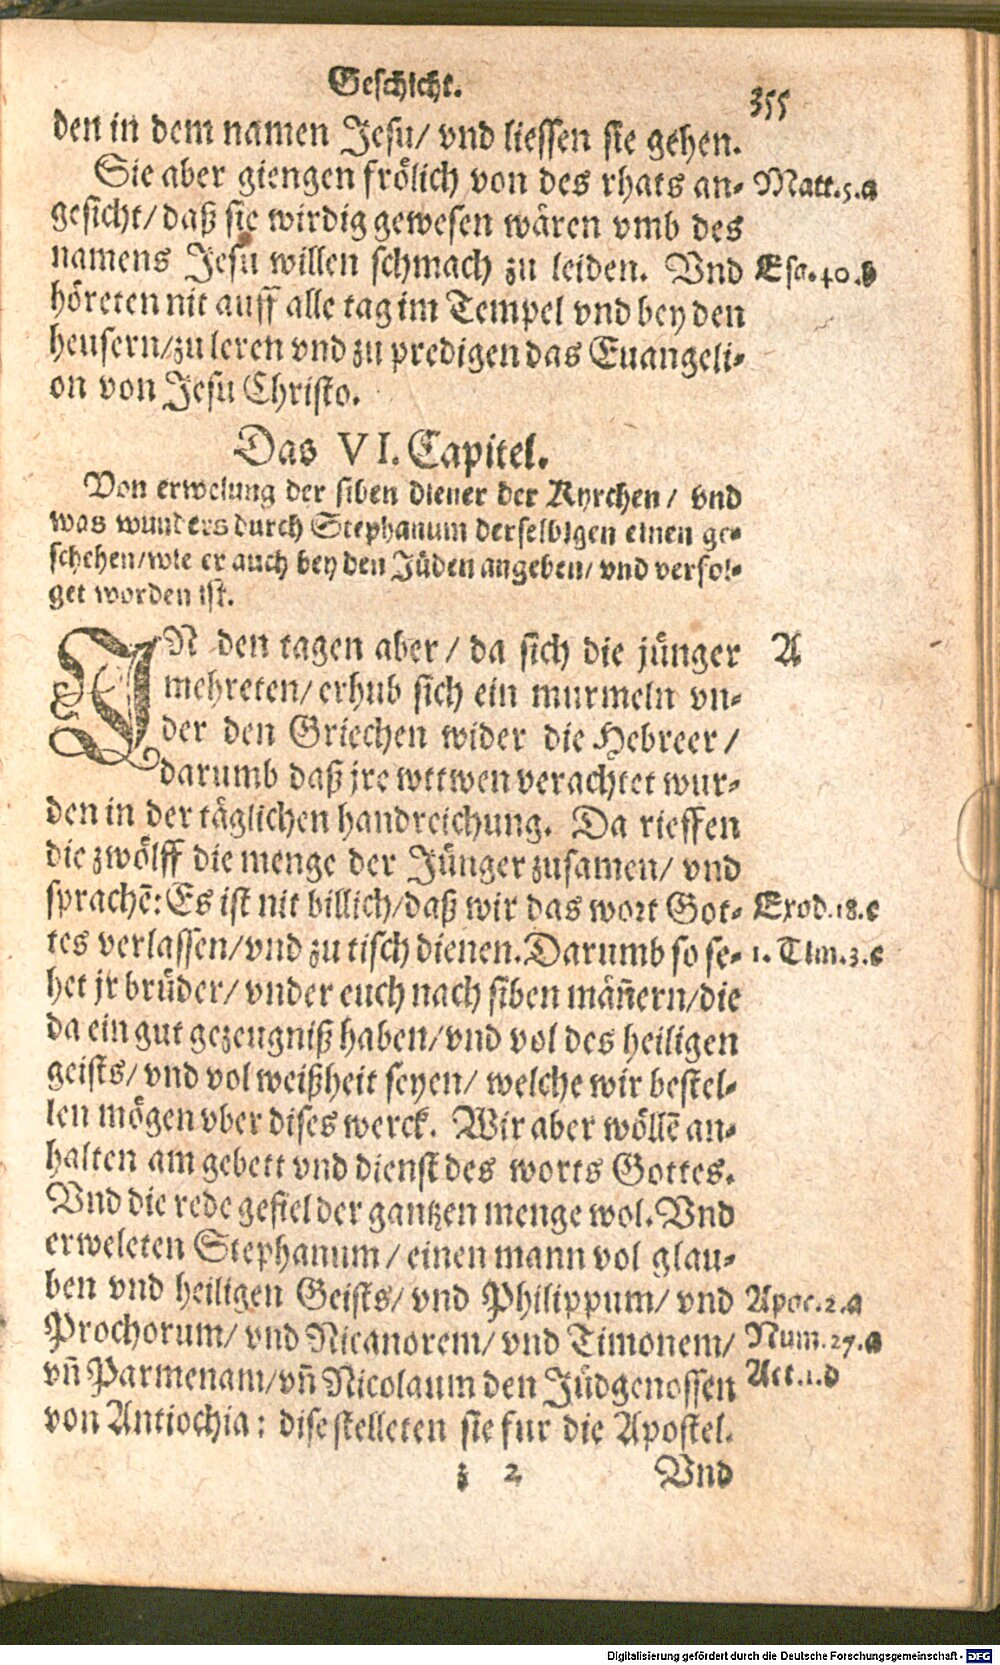 Geschicht.
355
den in dem namen Jesu/ vnd liessen sie gehen.
Sie aber giengen frölich von des rhats an-
Matt.5.a
gesicht/ daß sie wirdig gewesen wären vmb des
namens Jesu willen schmach zu leiden. Vnd
Esa.40.b
höreten nit auff alle tag im Tempel vnd bey den
heusern/zu leren vnd zu predigen das Euangeli-
on von Jesu Christo.
Das VI. Capitel.
Von erwelung der siben diener der Kyrchen/ vnd
was wunders durch Stephanum derselbigen einen ge-
schehen/wie er auch bey den Jüden angeben/ vnd verfol-
get worden ist.
IN den tagen aber/ da sich die jünger
A
mehreten/ erhub sich ein murmeln vn-
der den Griechen wider die Hebreer/
darumb daß jre witwen verachtet wur-
den in der täglichen handreichung. Da rieffen
die zwölff die menge der Jünger zusamen/ vnd
sprachē: Es ist nit billich/daß wir das wort Got-
Exod.18.c
tes verlassen/vnd zu tisch dienen. Darumb so se-
1. Tim.3.c
het jr brüder/ vnder euch nach siben mäñern/die
da ein gut gezeugniß haben/vnd vol des heiligen
geists/ vnd vol weißheit seyen/ welche wir bestel-
len mögen vber dises werck. Wir aber wöllē an-
halten am gebett vnd dienst des worts Gottes.
Vnd die rede gefiel der gantzen menge wol. Vnd
erweleten Stephanum/ einen mann vol glau-
ben vnd heiligen Geists/ vnd Philippum/ vnd
Apoc.2.a
Prochorum/ vnd Nicanorem/ vnd Timonem/
Num.27.a
vñ Parmenam/vñ Nicolaum den Jüdgenossen
Act.1.d
von Antiochia: dise stelleten sie fur die Apostel.
z 2 Vnd
Digitalisierung gefördert durch die Deutsche Forschungsgemeinschaft - DFG